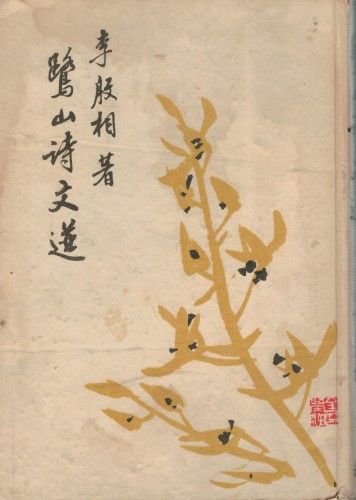 李殷相著
鷺山詩文選